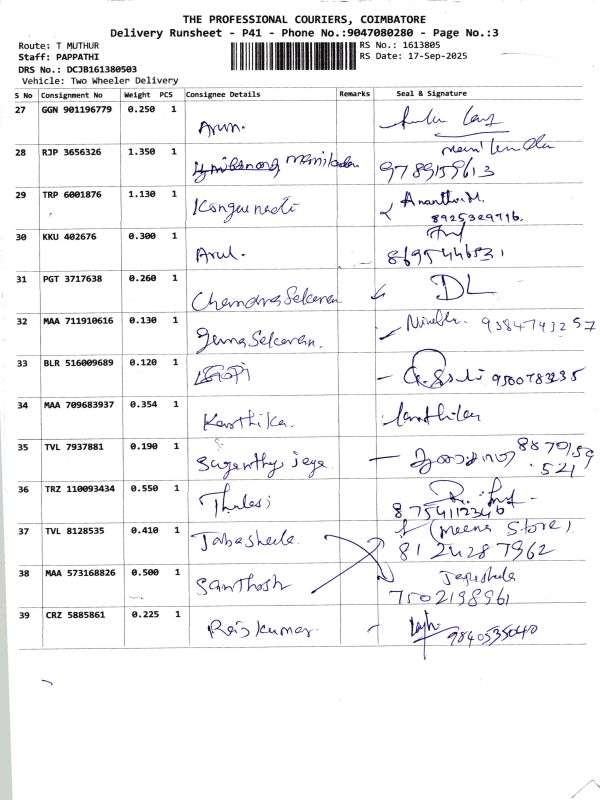 THE PROFESSIONAL COURIERS, COIMBATORE
Delivery Runsheet - P41 - Phone No.:9047080280 - Page No.:3
Route: T MUTHUR RS No.: 1613805
Staff: PAPPATHI RS Date: 17-Sep-2025
DRS No.: DCJB161380503
Vehicle: Two Wheeler Delivery
S No Consignment No Weight PCS Consignee Details Remarks Seal & Signature
27 GGN 901196779 0.250 1 Arun.
28 RJP 3656326 1.350 1 9789159613
29 TRP 6001876 1.130 1 Kongu nadi
8925329716.
30 KKU 402676 0.300 1 Arul. 8695446531
31 PGT 3717638 0.260 1 Chandra Sekaran DL
32 MAA 711910616 0.130 1 9384743257
33 BLR 516009689 0.120 1 Gopi 9500783235
34 MAA 709683937 0.354 1 Karthika.
35 TVL 7937881 0.190 1 Suganthy jeya 8870159
521
36 TRZ 110093434 0.550 1 Thulasi 8754112346
37 TVL 8128535 0.410 1 Jabasheela (meena Store)
8124287962
38 MAA 573168826 0.500 1 Santhosh
7502198961
39 CRZ 5885861 0.225 1 Rajkumar 9840535040